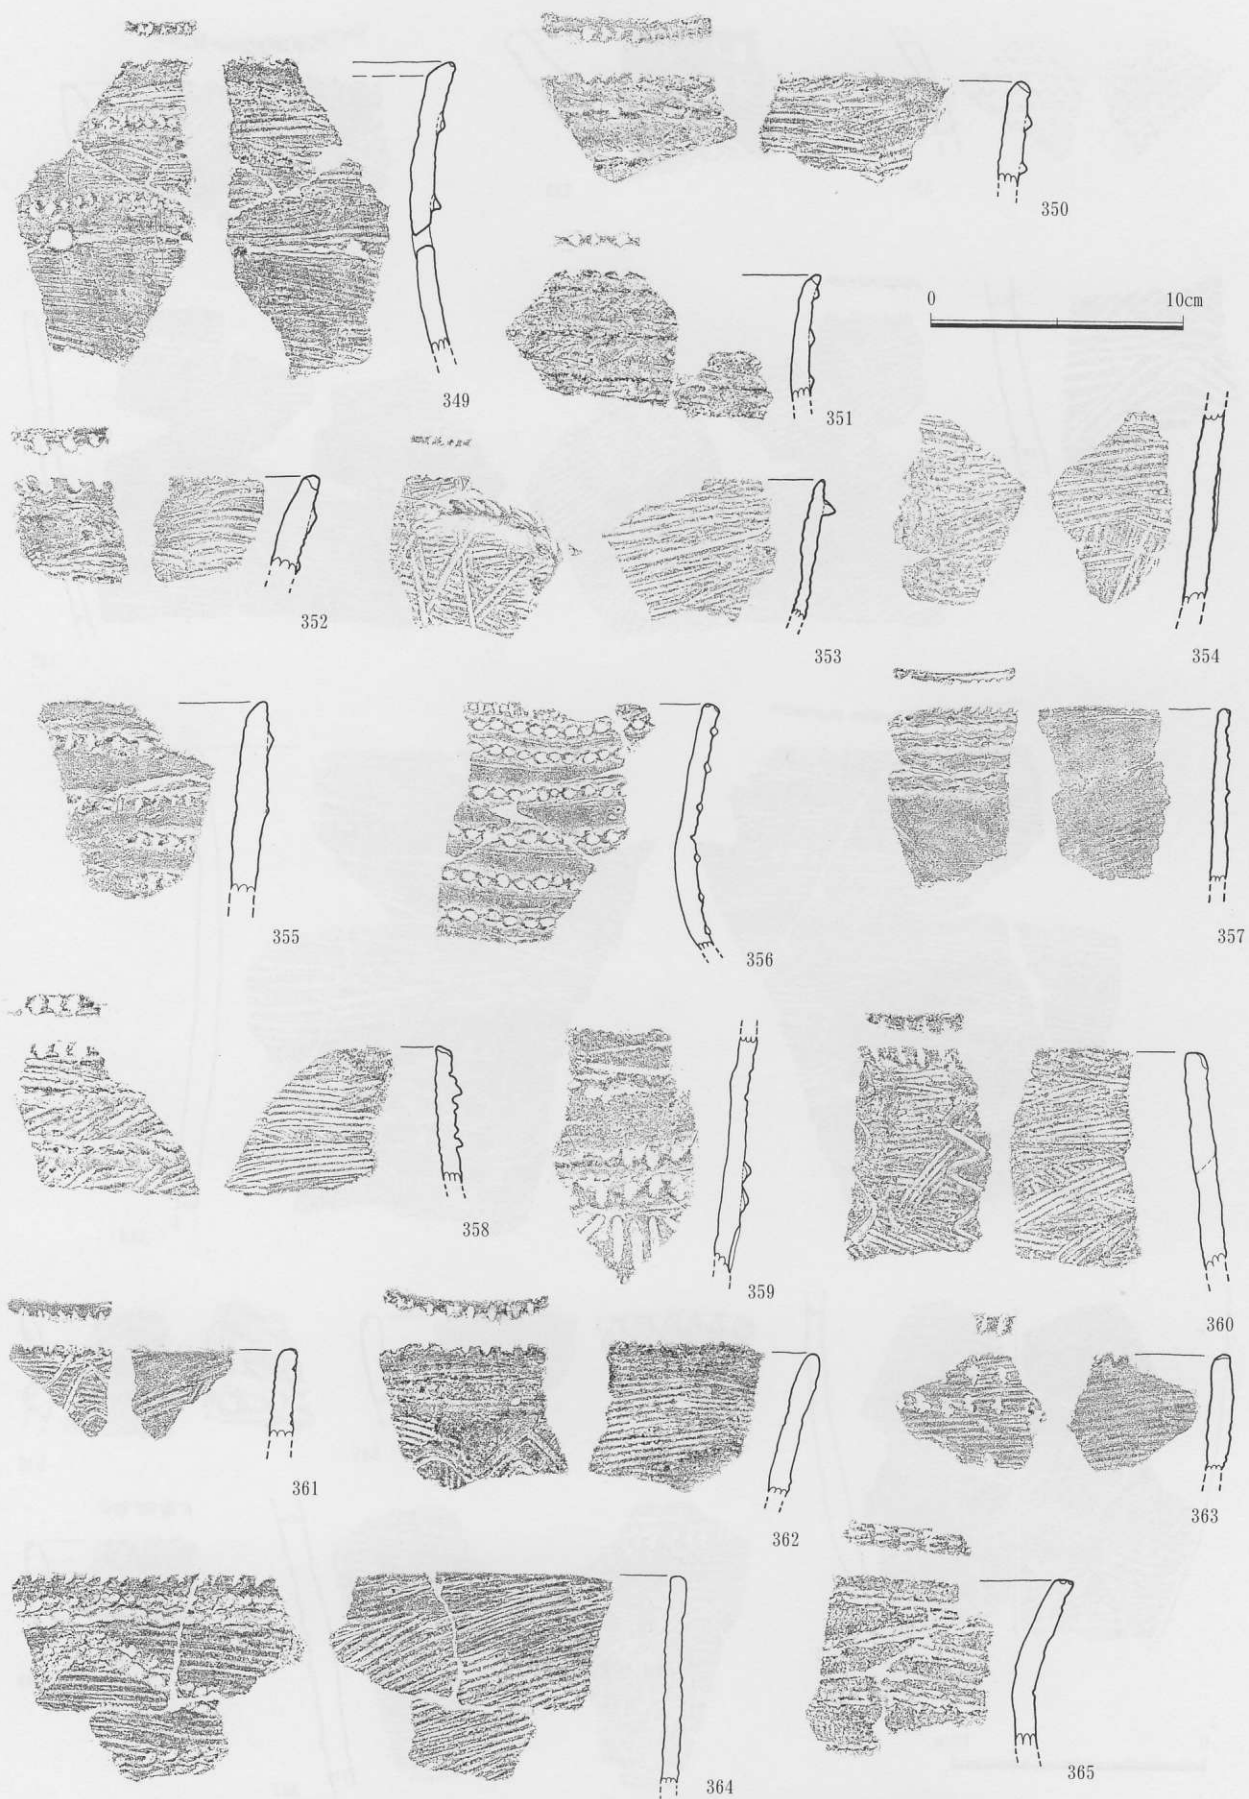 350
0 10cm
349
351
352
353
354
355
356
357
358
359
360
361
362
363
364
365